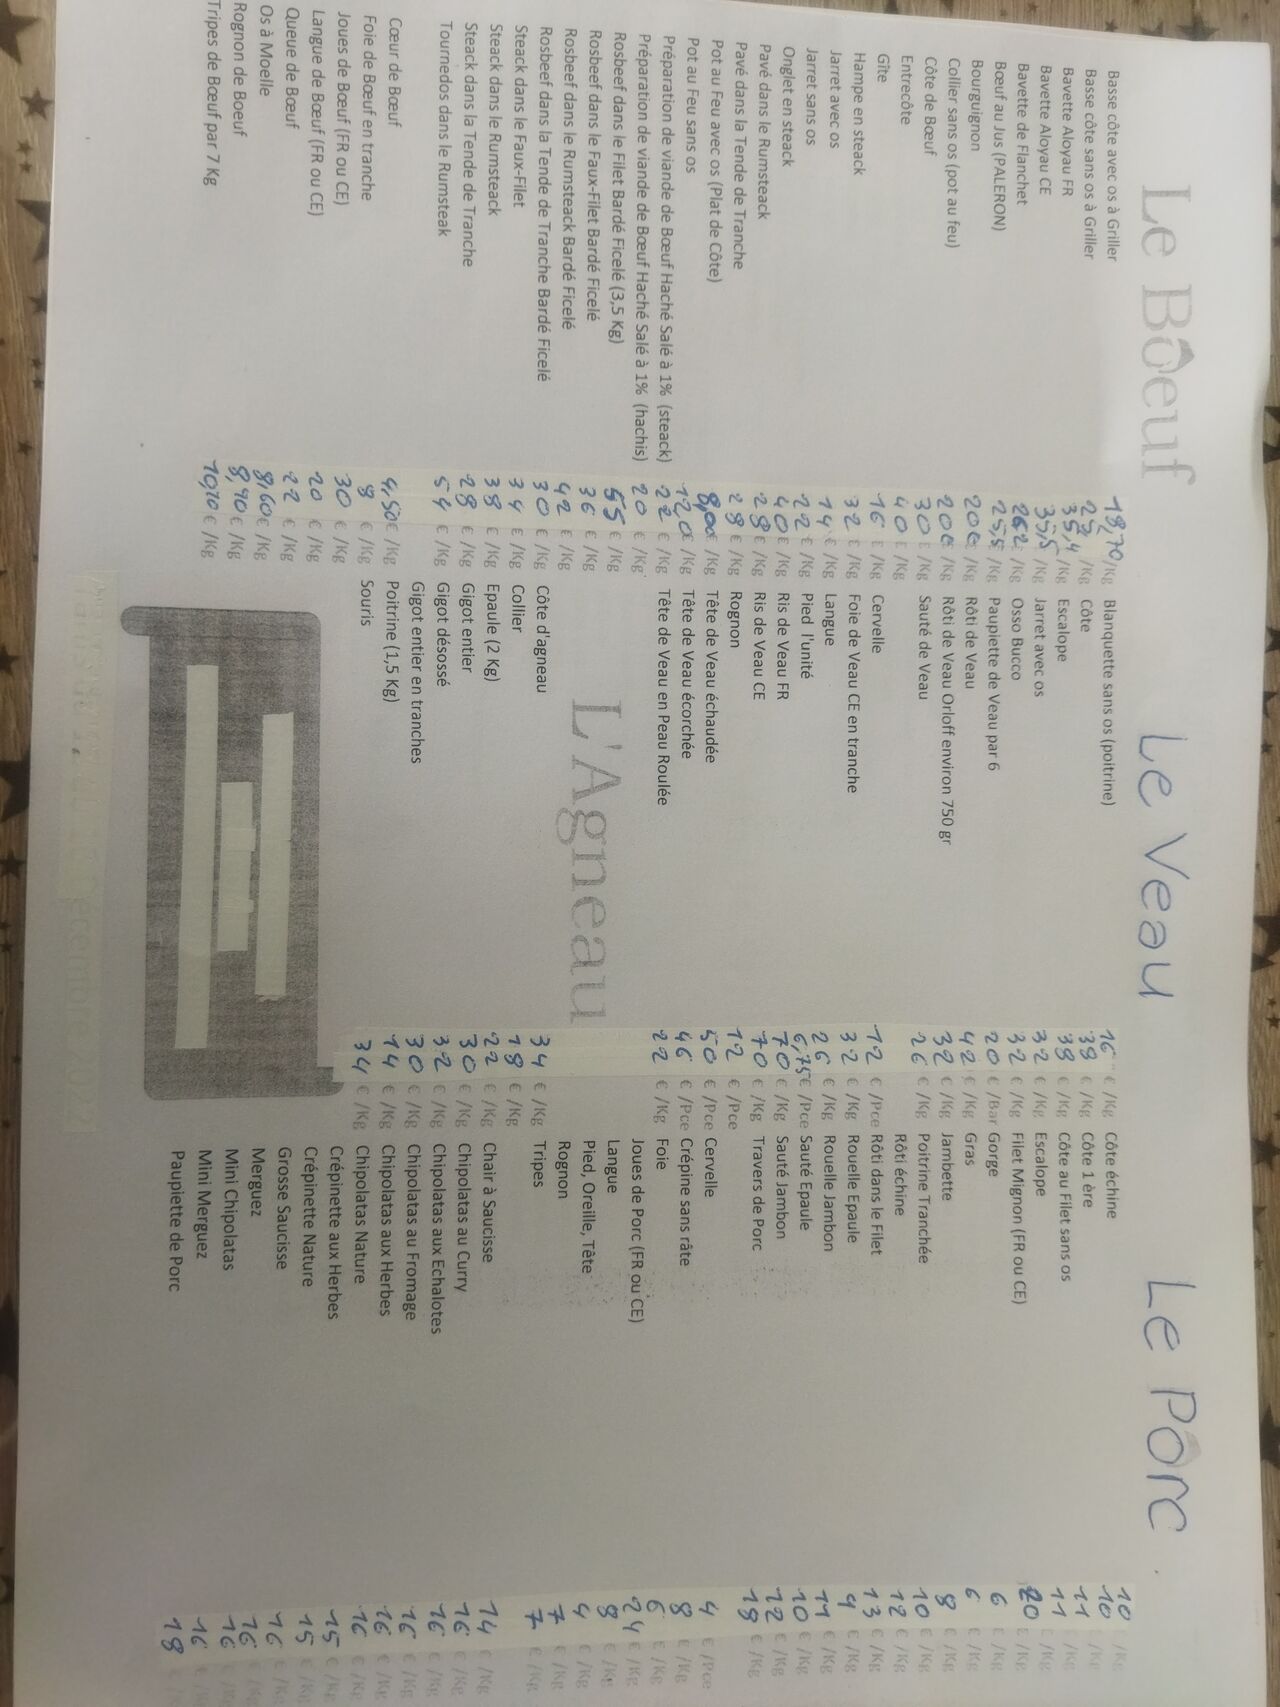 Le Bœuf
Basse côte avec os à Griller 18,70 €/Kg
Basse côte sans os à Griller
Bavette Aloyau FR 35,4 €/Kg
Bavette Aloyau CE 35,5 €/Kg
Bavette de Flanchet 26,2 €/Kg
Bœuf au Jus (PALERON) 25,5 €/Kg
Bourguignon 20 €/Kg
Collier sans os (pot au feu) 20 €/Kg
Côte de Bœuf 30 €/Kg
Entrecôte 40 €/Kg
Gîte 16 €/Kg
Hampe en steack 32 €/Kg
Jarret avec os 14 €/Kg
Jarret sans os 22 €/Kg
Onglet en steack 40 €/Kg
Pavé dans le Rumsteack 28 €/Kg
Pavé dans la Tende de Tranche 28 €/Kg
Pot au Feu avec os (Plat de Côte) 8,00 €/Kg
Pot au Feu sans os 12,0 €/Kg
Préparation de viande de Bœuf Haché Salé à 1% (steack) 22 €/Kg
Préparation de viande de Bœuf Haché Salé à 1% (hachis) 20 €/Kg
Rosbeef dans le Filet Bardé Ficelé (3,5 Kg) 55 €/Kg
Rosbeef dans le Faux-Filet Bardé Ficelé 36 €/Kg
Rosbeef dans le Rumsteack Bardé Ficelé 42 €/Kg
Rosbeef dans la Tende de Tranche Bardé Ficelé 30 €/Kg
Steack dans le Faux-Filet 34 €/Kg
Steack dans le Rumsteack 38 €/Kg
Steack dans la Tende de Tranche 28 €/Kg
Tournedos dans le Rumsteak 54 €/Kg
Cœur de Bœuf 4,50 €/Kg
Foie de Bœuf en tranche 8 €/Kg
Joues de Bœuf (FR ou CE) 30 €/Kg
Langue de Bœuf (FR ou CE) 20 €/Kg
Queue de Bœuf 22 €/Kg
Os à Moelle 8,60 €/Kg
Rognon de Boeuf 8,90 €/Kg
Tripes de Bœuf par 7 Kg 10,10 €/Kg
Le Veau
Blanquette sans os (poitrine) 16 €/Kg
Côte 38 €/Kg
Escalope 38 €/Kg
Jarret avec os 32 €/Kg
Osso Bucco 32 €/Kg
Paupiette de Veau par 6 20 €/Bar
Rôti de Veau 42 €/Kg
Rôti de Veau Orloff environ 750 gr 32 €/Kg
Sauté de Veau 26 €/Kg
Cervelle 12 €/Pce
Foie de Veau CE en tranche 32 €/Kg
Langue 26 €/Kg
Pied l'unité 6,75 €/Pce
Ris de Veau FR 70 €/Kg
Ris de Veau CE 70 €/Kg
Rognon 12 €/Pce
Tête de Veau échaudée 50 €/Pce
Tête de Veau écorchée 46 €/Pce
Tête de Veau en Peau Roulée 22 €/Kg
L'Agneau
Côte d'agneau 34 €/Kg
Collier 18 €/Kg
Epaule (2 Kg) 22 €/Kg
Gigot entier 30 €/Kg
Gigot désossé 32 €/Kg
Gigot entier en tranches 30 €/Kg
Poitrine (1,5 Kg) 14 €/Kg
Souris 34 €/Kg
Le Porc
Côte échine 10 €/Kg
Côte 1 ère 10 €/Kg
Côte au Filet sans os 11 €/Kg
Escalope 11 €/Kg
Filet Mignon (FR ou CE) 20 €/Kg
Gorge 6 €/Kg
Gras 6 €/Kg
Jambette 8 €/Kg
Poitrine Tranchée 10 €/Kg
Rôti échine 12 €/Kg
Rôti dans le Filet 13 €/Kg
Rouelle Epaule 4 €/Kg
Rouelle Jambon 11 €/Kg
Sauté Epaule 10 €/Kg
Sauté Jambon 12 €/Kg
Travers de Porc 18 €/Kg
Cervelle 4 €/Pce
Crépine sans râte 8 €/Kg
Foie 6 €/Kg
Joues de Porc (FR ou CE) 24 €/Kg
Langue 8 €/Kg
Pied, Oreille, Tête 4 €/Kg
Rognon 7 €/Kg
Tripes 7 €/Kg
Chair à Saucisse 14 €/Kg
Chipolatas au Curry 16 €/Kg
Chipolatas aux Echalotes 16 €/Kg
Chipolatas au Fromage 16 €/Kg
Chipolatas aux Herbes 16 €/Kg
Chipolatas Nature 16 €/Kg
Crépinette aux Herbes 15 €/Kg
Crépinette Nature 15 €/Kg
Grosse Saucisse 16 €/Kg
Merguez 16 €/Kg
Mini Chipolatas 16 €/Kg
Mini Merguez 16 €/Kg
Paupiette de Porc 18